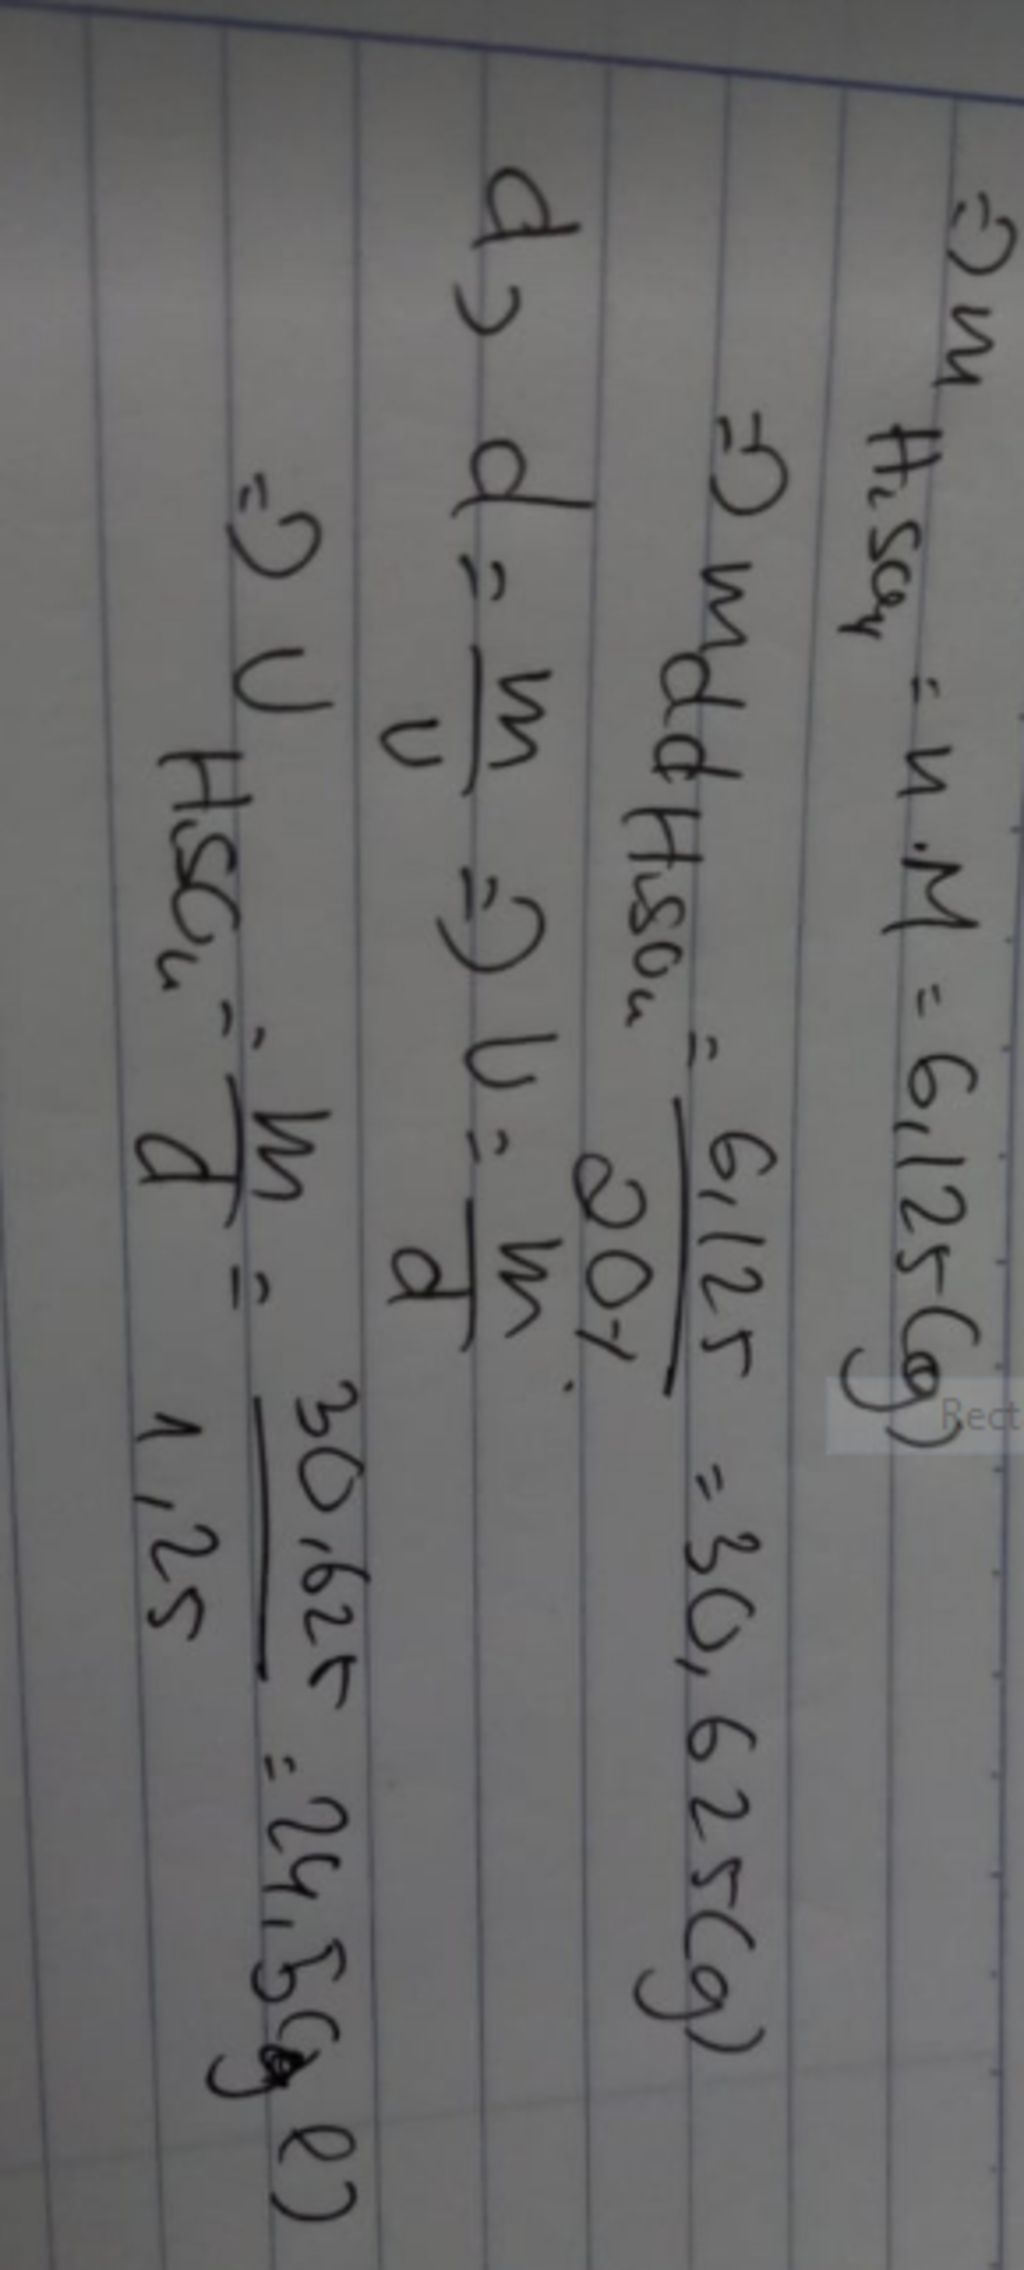 => m H2SO4 = n.M = 6,125(g)
=> mdd H2SO4 = 6,125 / 20% = 30,625(g)
d) d = m / v => v = m / d
=> V H2SO4 = m / d = 30,625 / 1,25 = 24,5( l)
Rect